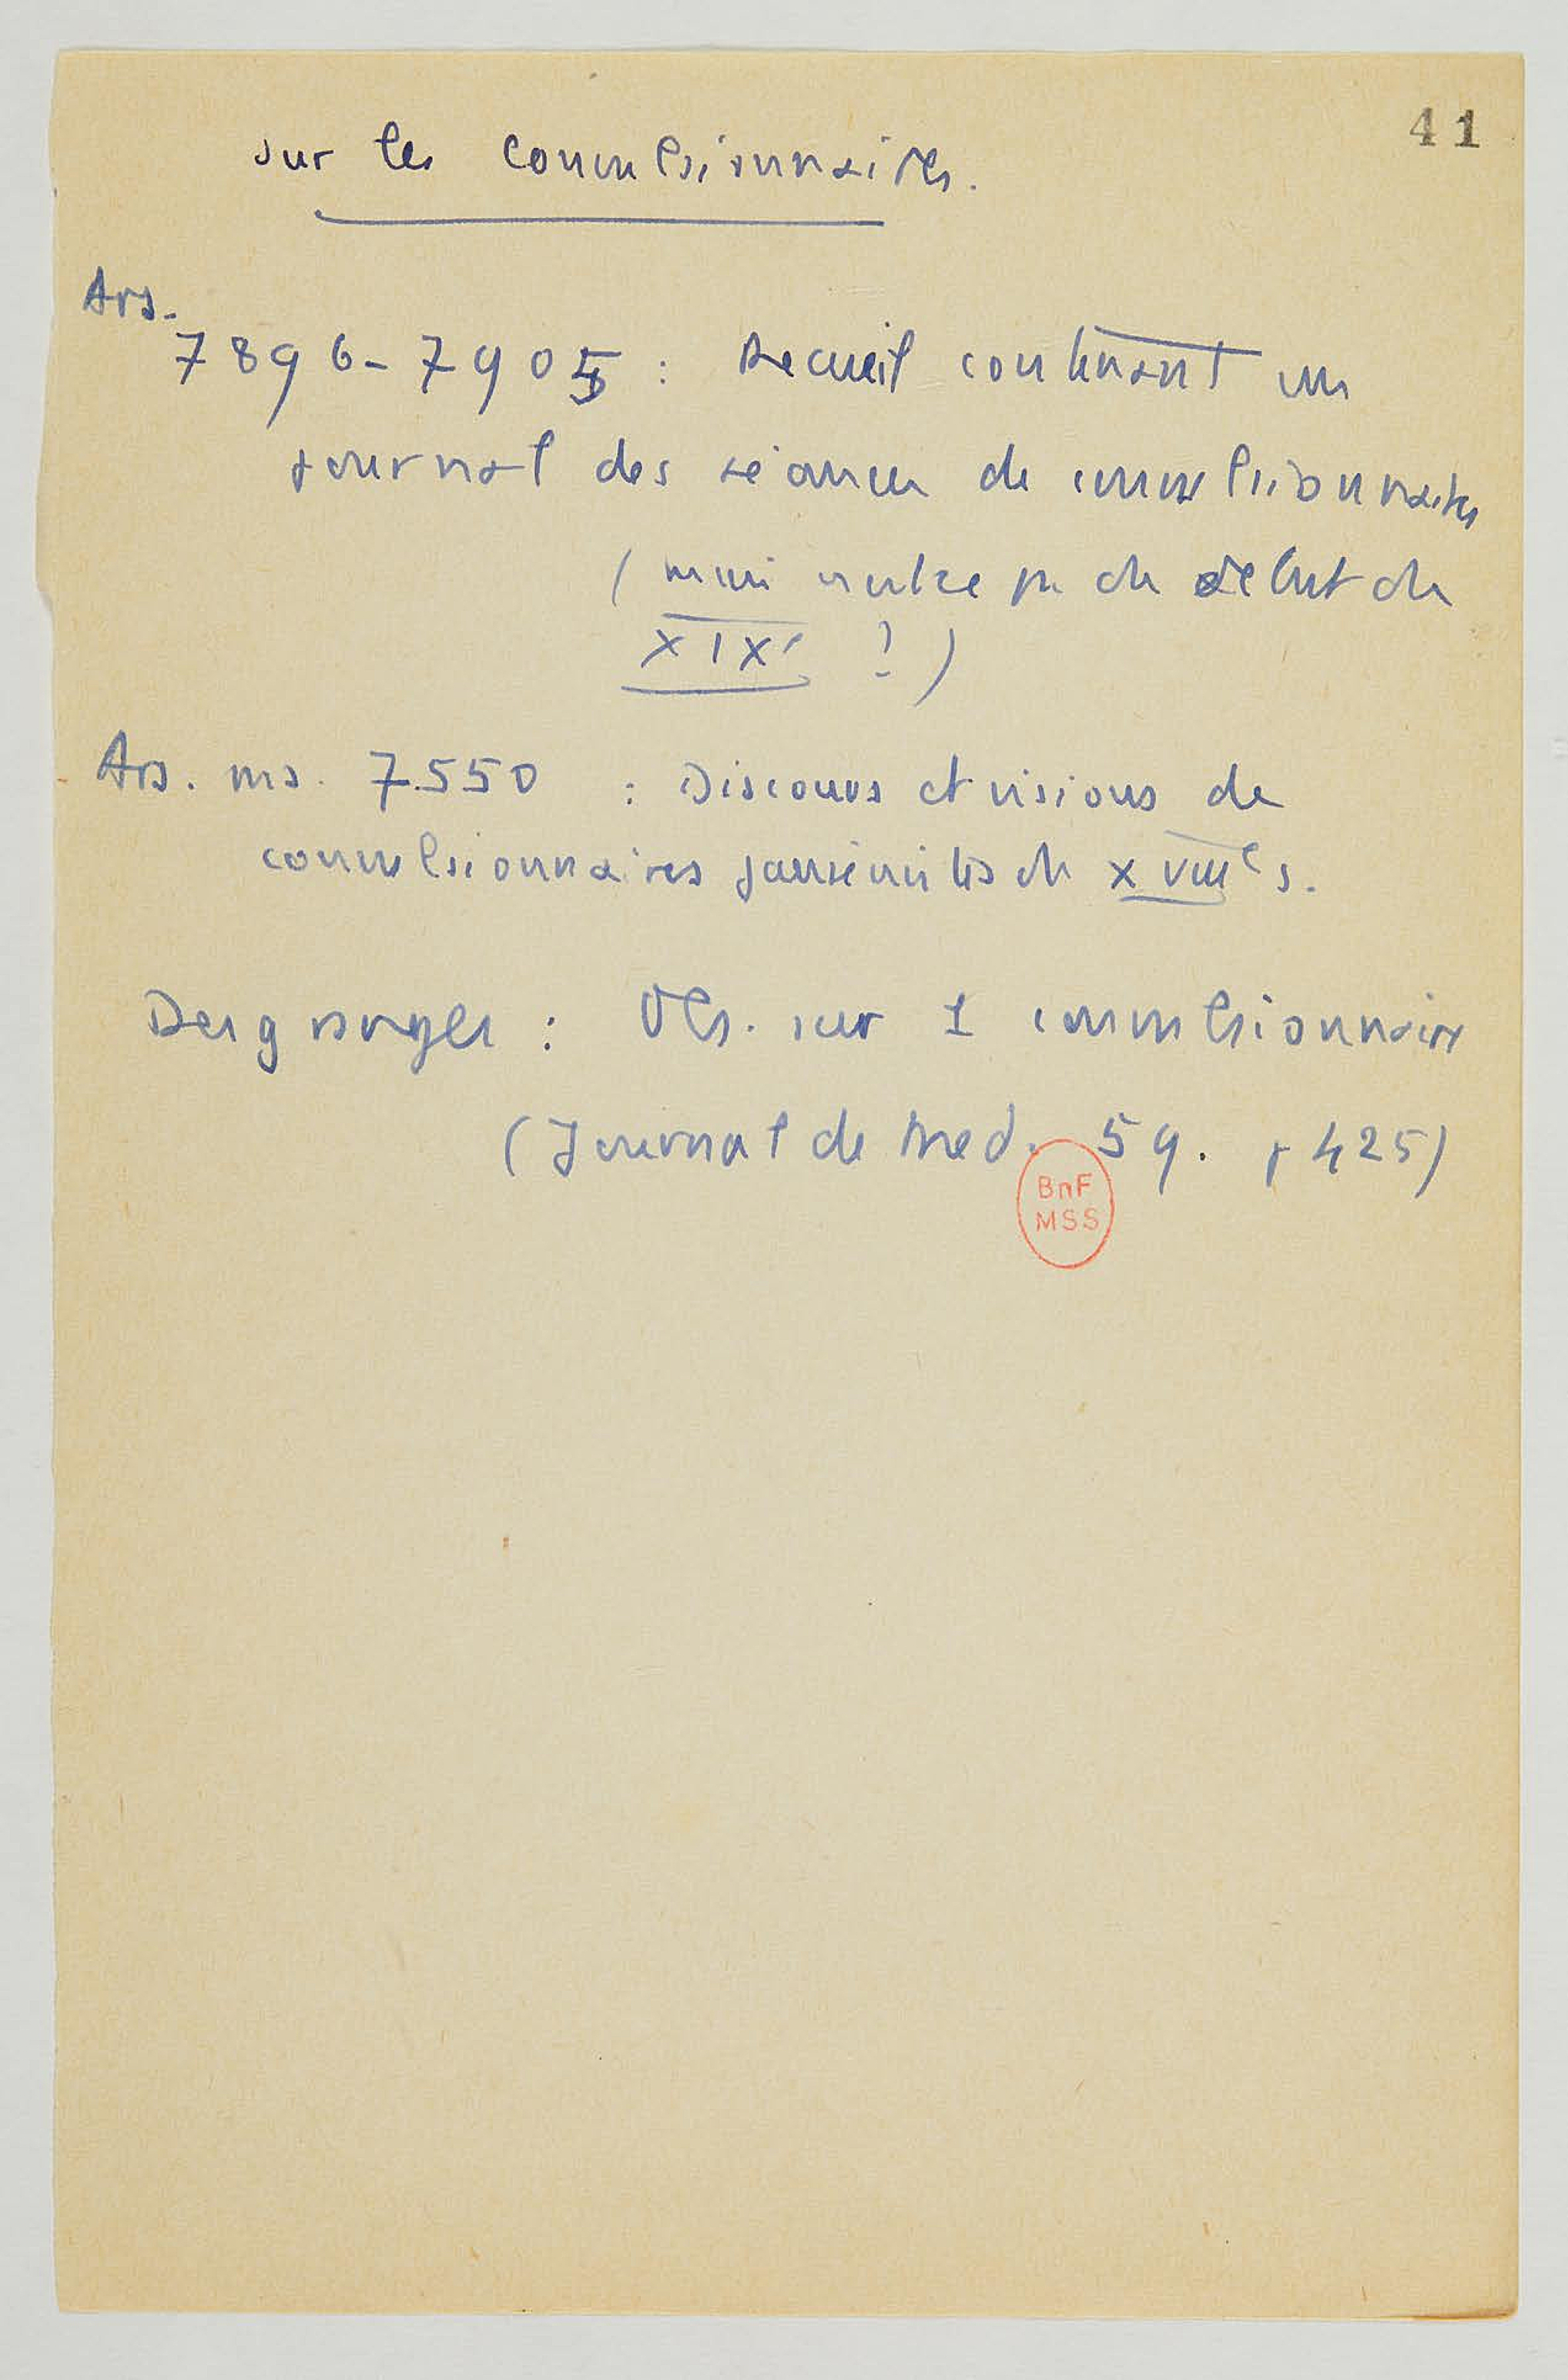 41
sur les convulsionnaires.
Ars.
7896-7905 : Recueil contenant un
journal des séances de convulsionnaires
(mais n'est-ce pas du début du
XIXe ?)
Ars. ms. 7550 : Discours et visions de
convulsionnaires jansénistes du XVIIIe s.
: Obs. sur 1 convulsionnaire
(Journal de Med. 59. p 425)
BnF
MSS